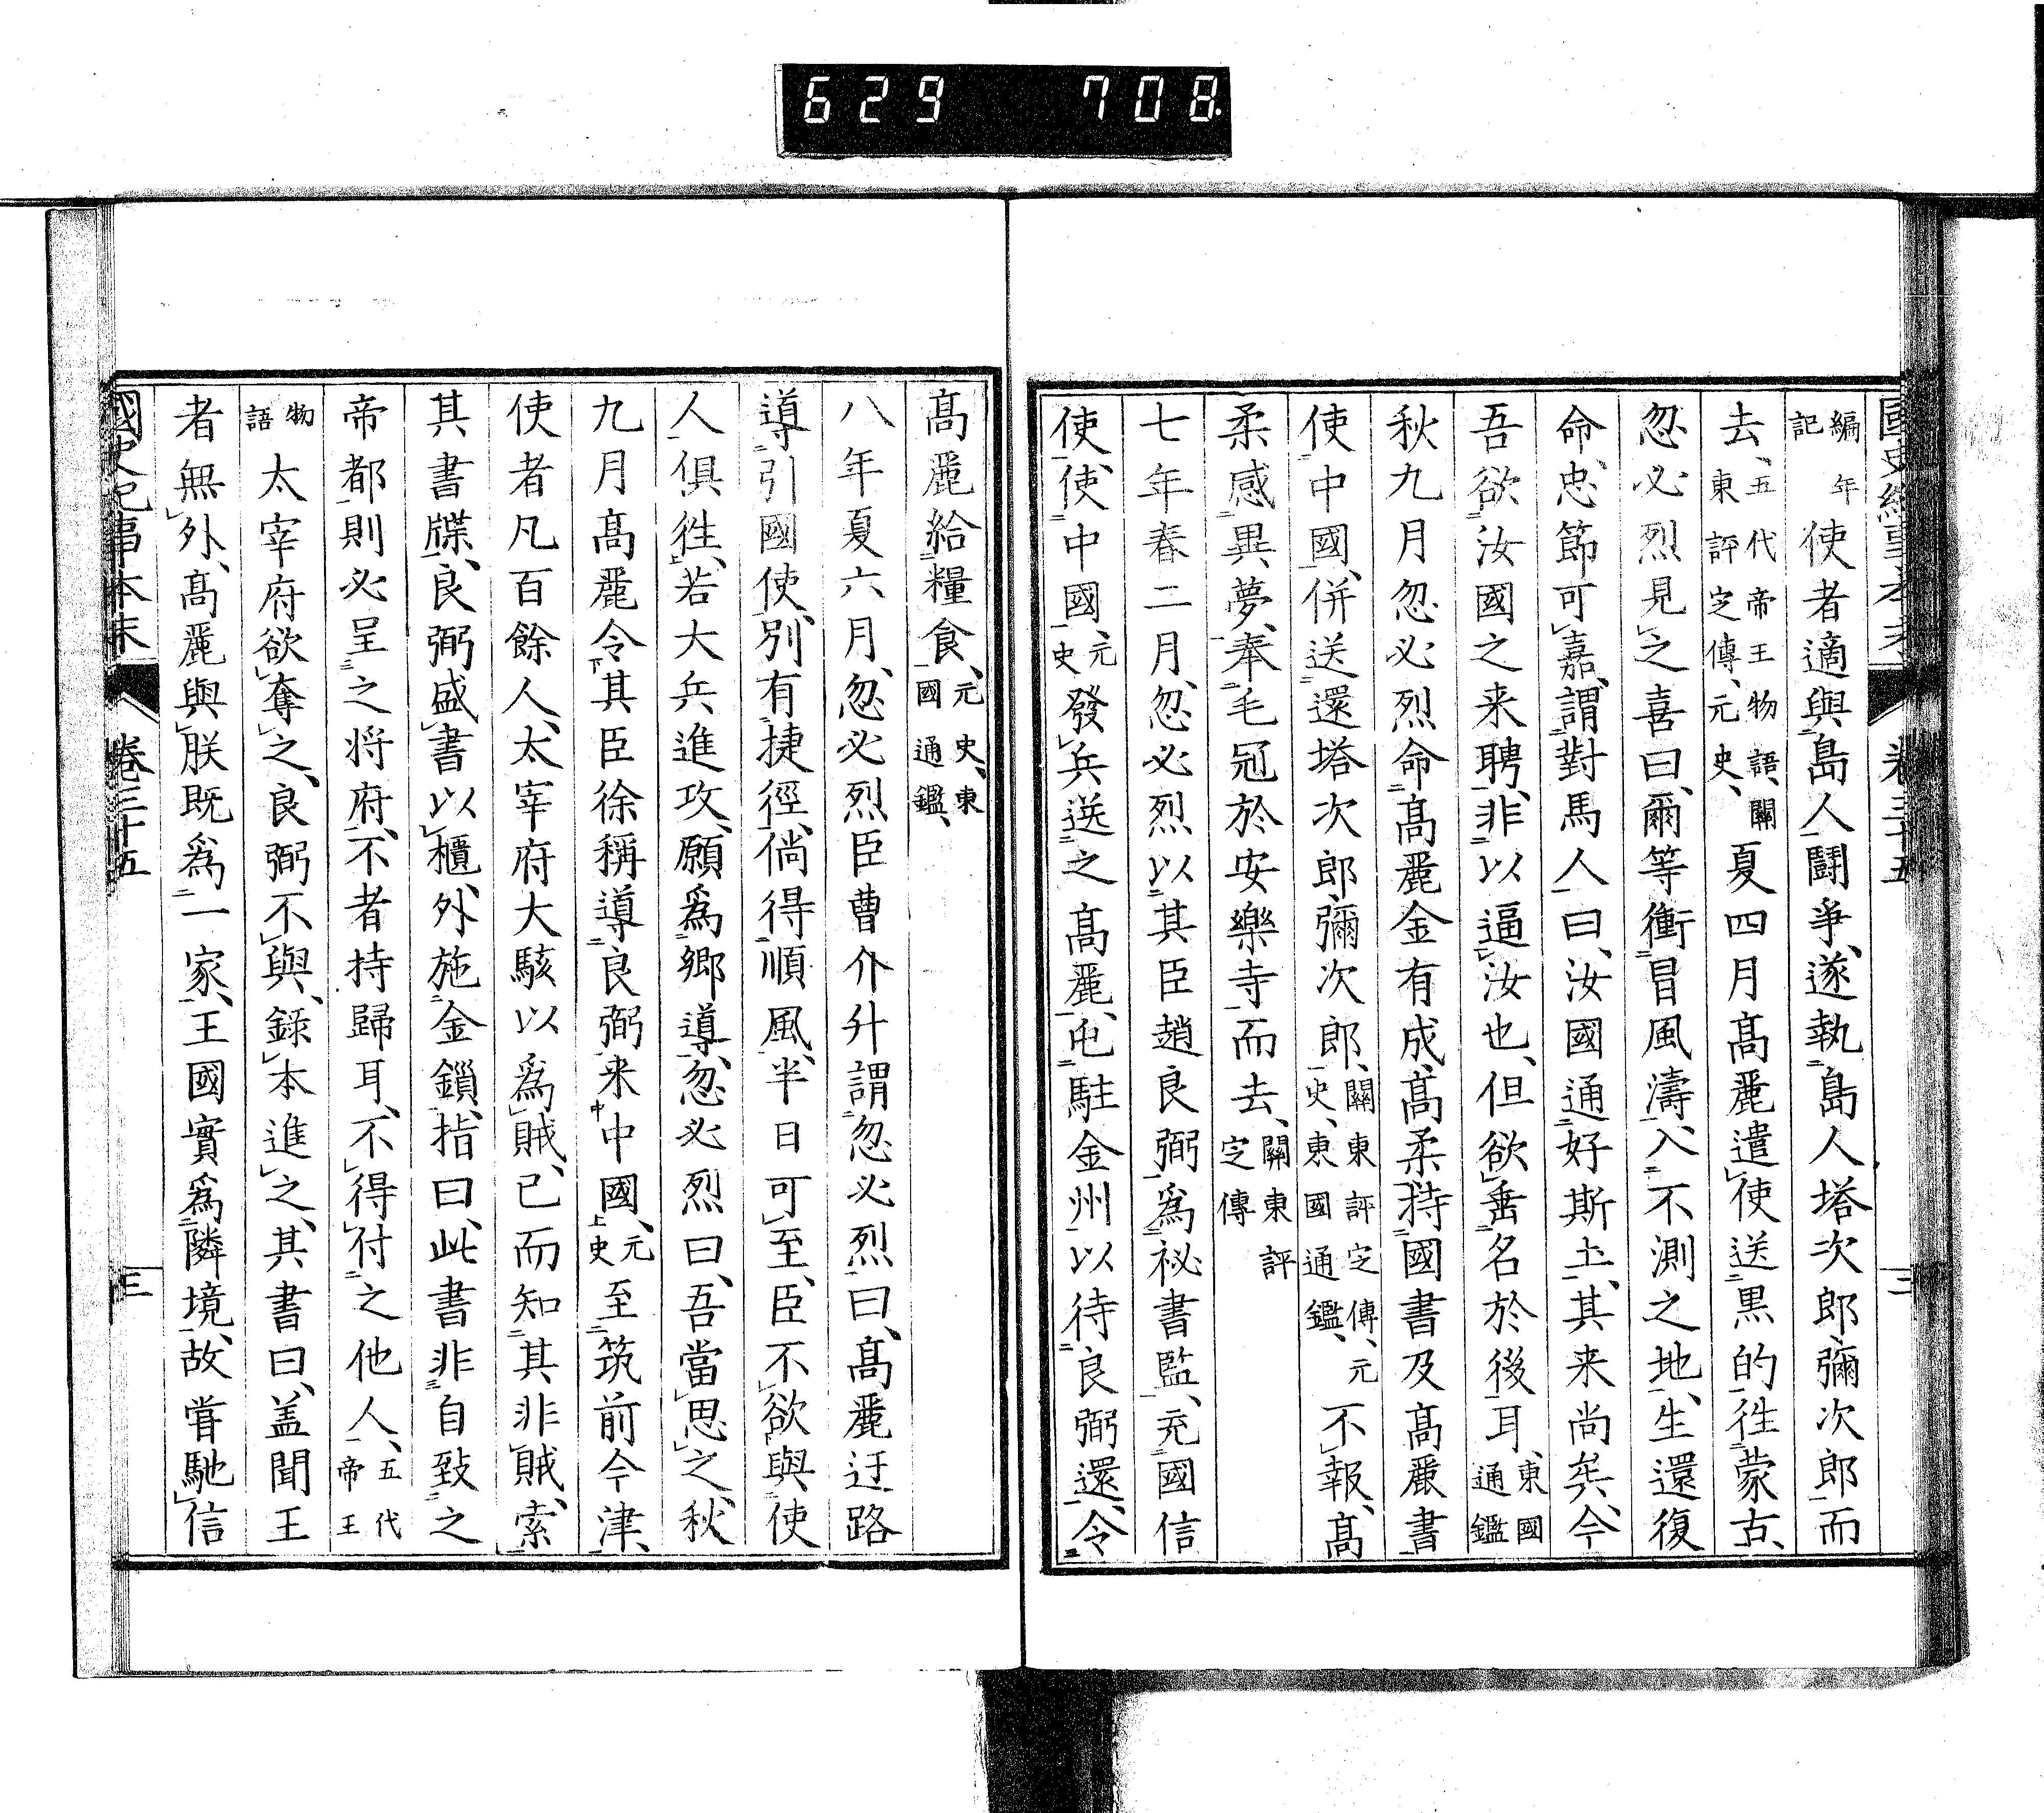 629 708
編年記使者適與島人鬪爭、遂執島人塔次郎彌次郎而
去、五代帝王物語、關東評定傳、元史、夏四月高麗遣使送黑的徃蒙古、
忽必烈見之喜曰、爾等衝冒風濤、入不測之地、生還復
命、忠節可嘉、謂對馬人曰、汝國通好斯土、其来尚矣、今
吾欲汝國之来聘、非以逼汝也、但欲垂名於後耳、東國通鑑
秋九月忽必烈命高麗金有成、高柔持國書及高麗書
使中國、併送還塔次郎彌次郎、關東評定傳、元史、東國通鑑、不報、高
柔感異夢、奉毛冠於安樂寺而去、關東評定傳
七年春二月、忽必烈以其臣趙良弼爲祕書監、充國信
使、使中國、元史發兵送之高麗、屯駐金州以待良弼還、令
高麗給糧食、元史、東國通鑑、
八年夏六月、忽必烈臣曹介升謂忽必烈曰、高麗迂路
導引國使、別有捷徑、倘得順風、半日可至、臣不欲與使
人俱徃、若大兵進攻、願爲鄉導、忽必烈曰、吾當思之、秋
九月高麗令其臣徐稱導良弼来中國、元史至筑前今津、
使者凡百餘人、太宰府大駭以爲賊、已而知其非賊、索
其書牒、良弼盛書以櫃、外施金鎖、指曰、此書非自致之
帝都、則必呈之将府、不者持歸耳、不得付之他人、五代帝王
物語太宰府欲奪之、良弼不與、錄本進之、其書曰、盖聞王
者無外、高麗與朕既爲一家、王國實爲隣境、故嘗馳信
國史紀事本末 卷三十五 三